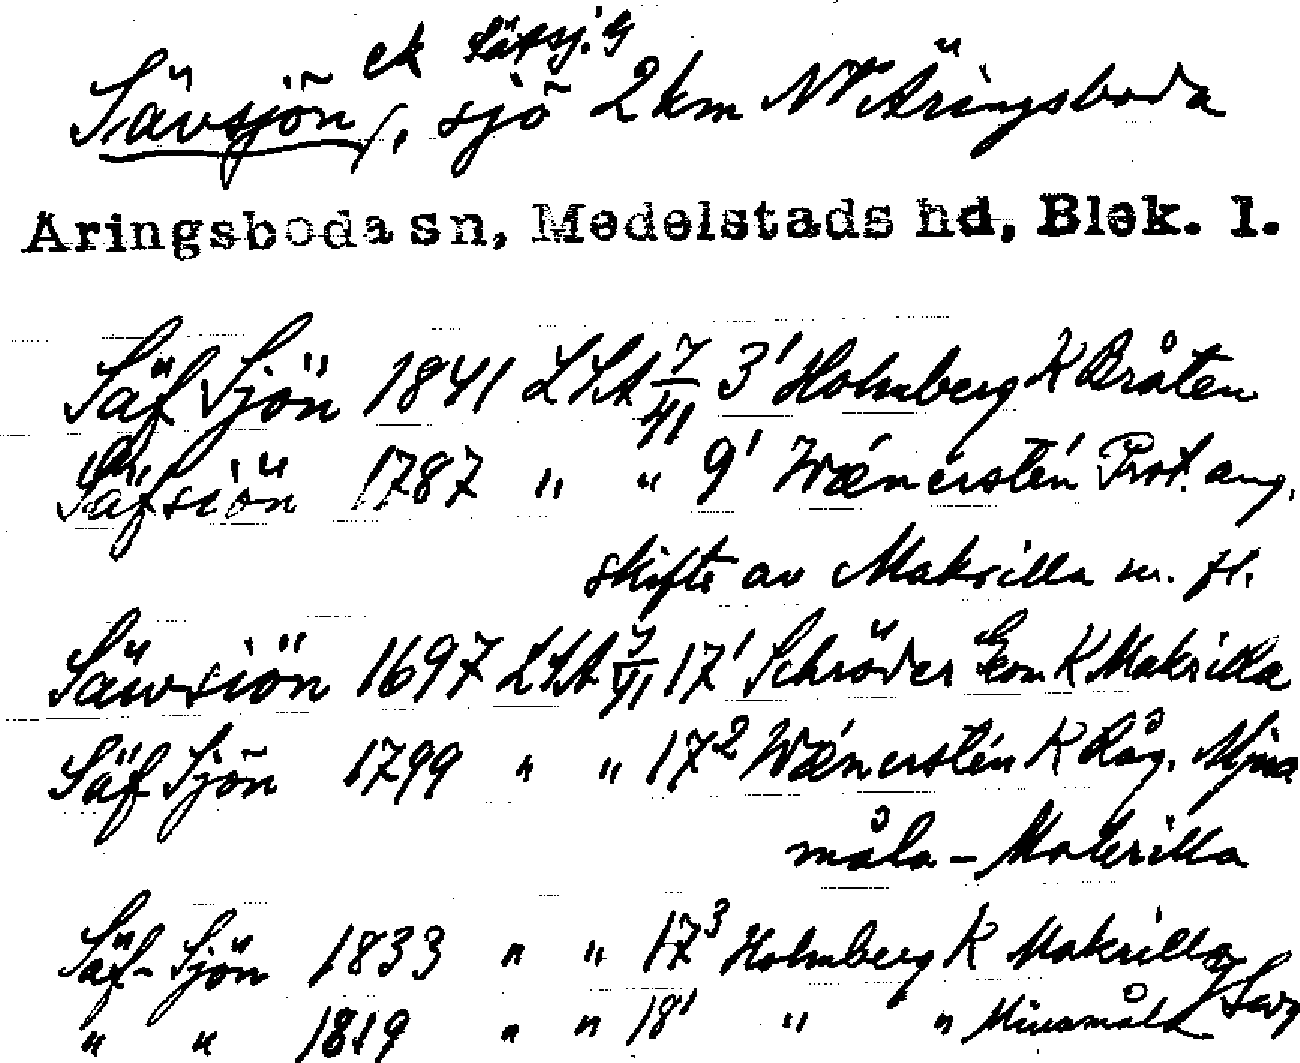 ek Säfsj. G
Sävsjön, sjö 2 km NV Äringsboda
Aringsboda sn, Medelstads hd, Blek. l.
Säf Sjön 1841 LSA 7/41 3¹ Holmberg K Bråten
Säfsiön 1787 " " 9¹ Wænerstén Prot. ang.
skifte av Makrilla m. fl.
Säwsiön 1697 LSA 7/41 17¹ Schröder Geom K Makrilla
Säf Sjön 1799 " " 17² Wænerstén K Råg. Mjua
måla - Makrilla
Säf-Sjön 1833 " " 17³ Holmberg K Makrilla
" " 1819 " " 18¹ " "